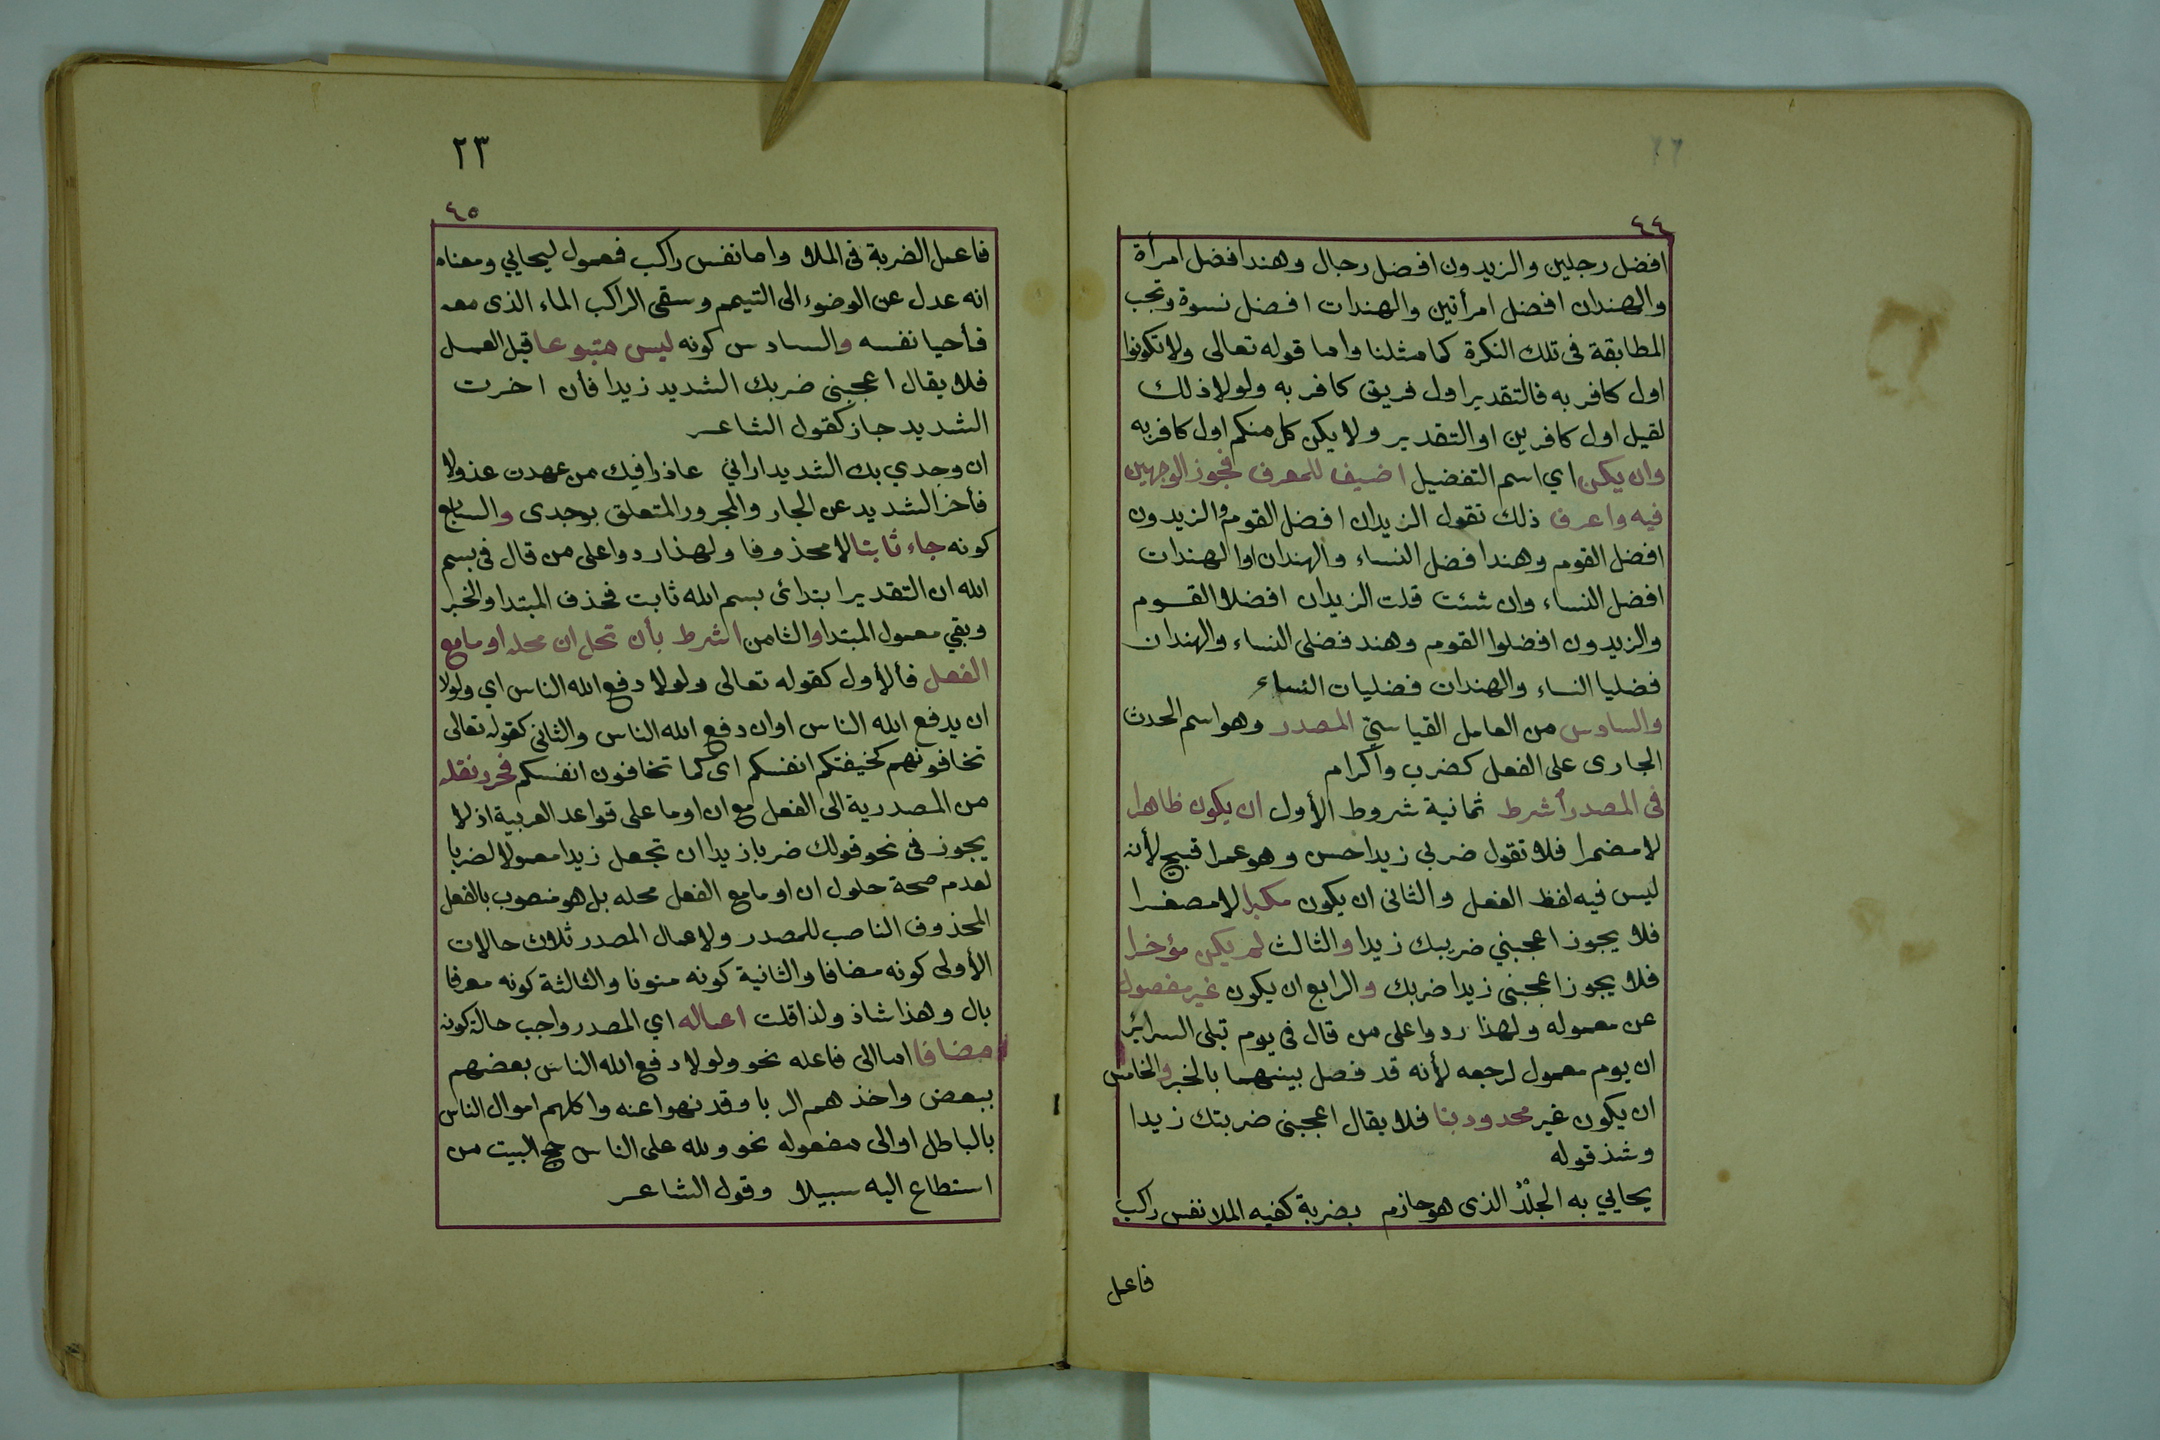 ٤٤
افضل رجلين والزيدون افضل رجال وهند افضل امرأة
والهندان افضل امرأتين والهندات افضل نسوة وتجب
المطابقة فى تلك النكرة كما مثلنا واما قوله تعالى ولا تكونوا
اول كافر به فالتقدير اول فريق كافر به ولولا ذلك
لقيل اول كافرين او التقدير ولا يكن كل منكم اول كافر به
وان يكن اي اسم التفضيل اضيف للمعرف فجوز الوجهين
فيه واعرف ذلك تقول الزيدان افضل القوم والزيدون
افضل القوم وهند افضل النساء والهندان او الهندات
افضل النساء وان شئت قلت الزيدان افضلا القوم
والزيدون افضلوا القوم وهند فضلى النساء والهندان
فضليا النساء والهندات فضليات النساء
والسادس من العامل القياسيّ المصدر وهو اسم الحدث
الجارى على الفعل كضرب وأكرام
فى المصدر اشرط ثمانية شروط الأول ان يكون ظاهرا
لا مضمرا فلا تقول ضربي زيدا حسن وهو عمرا قبيح لأنه
ليس فيه لفظ الفعل والثانى ان يكون مكبرا لا مصغرا
فلا يجوز اعجبني ضريبك زيدا والثالث لم يكن مؤخرا
فلا يجوز اعجبنى زيدا ضربك والرابع ان يكون غير مفصول
عن معموله ولهذا ردوا على من قال فى يوم تبلى السرائر
ان يوم معمول لرجعه لأنه قد فصل بينهما بالخبر والخامس
ان يكون غير محدود بتا فلا يقال اعجبنى ضربتك زيدا
وشذ قوله
يحايي به الجلدُ الذى هو حازم بضربة كفيه الملا نفس راكب
فاعل
٢٣
٤٥
فاعمل الضربة فى الملا واما نفس راكب فمعمول ليحايي ومعناه
انه عدل عن الوضوء الى التيمم وسقى الراكب الماء الذى معه
فأحيا نفسه والسادس كونه ليس متبوعا قبل العمل
فلا يقال اعجبنى ضربك الشديد زيدا فأن اخرت
الشديد جاز كقول الشاعر
ان وجدي بك الشديد اراني عاذرا فيك من عهدت عذولا
فأخر الشديد عن الجار والمجرور المتعلق بوجدى والسابع
كونه جاء ثابتا لا محذوفا ولهذا ردوا على من قال فى بسم
الله ان التقدير ابتدائى بسم الله ثابت فحذف المبتدا والخبر
وبقي معمول المبتدا والثامن الشرط بأن تحل ان محله او ما مع
الفعل فألأول كقوله تعالى ولولا دفع الله الناس اي ولولا
ان يدفع الله الناس او ان دفع الله الناس والثانى كقوله تعالى
تخافونهم كخيفتكم انفسكم اى كما تخافون انفسكم فحرر نقله
من المصدرية الى الفعل مع ان او ما على قواعد العربية اذ لا
يجوز فى نحو قولك ضربا زيدا ان تجعل زيدا معمولا لضربا
لعدم صحة حلول ان او ما مع الفعل محله بل هو منصوب بالفعل
المحذوف الناصب للمصدر ولاعمال المصدر ثلاث حالات
الأولى كونه مضافا والثانية كونه منونا والثالثة كونه معرفا
بال وهذا شاذ ولذا قلت اعماله اي المصدر واجب حالة كونه
مضافا اما الى فاعله نحو ولولا دفع الله الناس بعضهم
ببعض واخذهم الربا وقد نهوا عنه واكلهم اموال الناس
بالباطل او الى مفعوله نحو ولله على الناس حج البيت من
استطاع اليه سبيلا وقول الشاعر